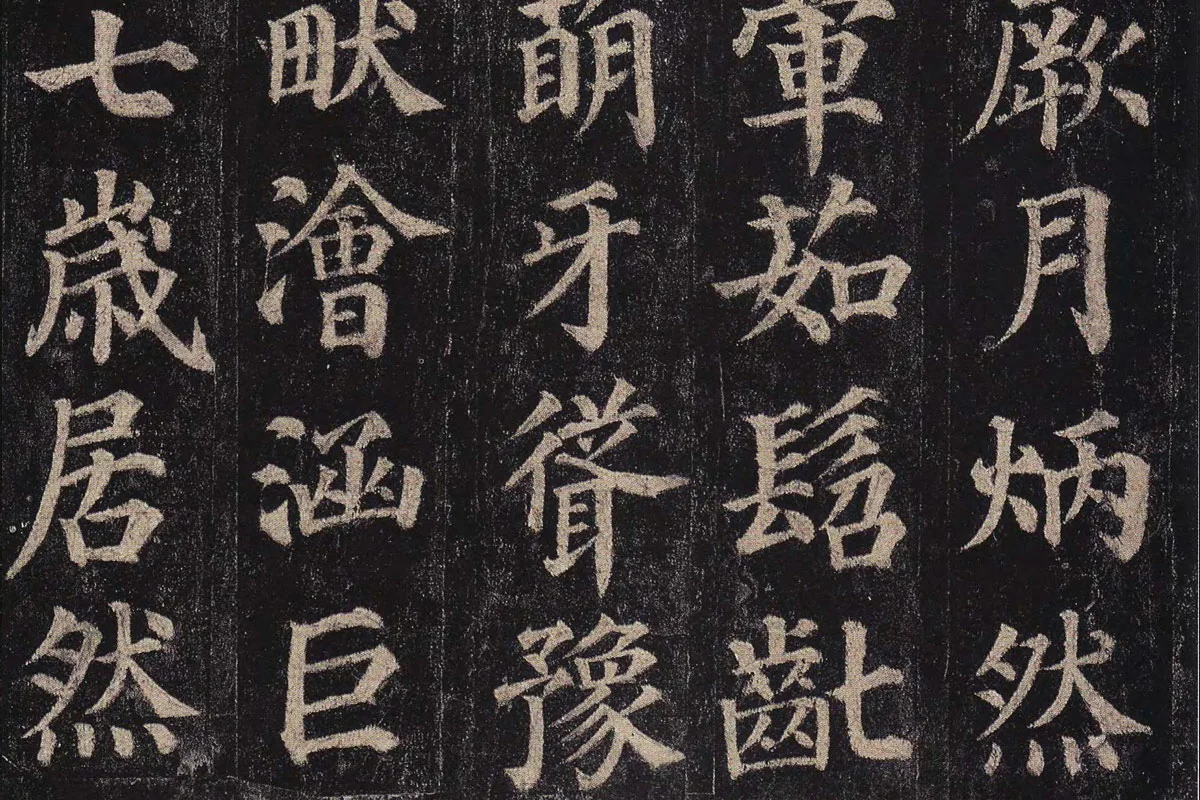 厥月炳然
葷茹髫齔
萌牙聳豫
畎澮涵巨
七歲居然